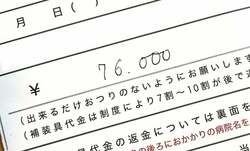 月 日( )
¥ 76.000
(出来るだけおつりのないようにお願いします
(補装具代金は制度により7割～10割が後で返
具代金の返金については裏面を
の後ろにおかかりの病院名を